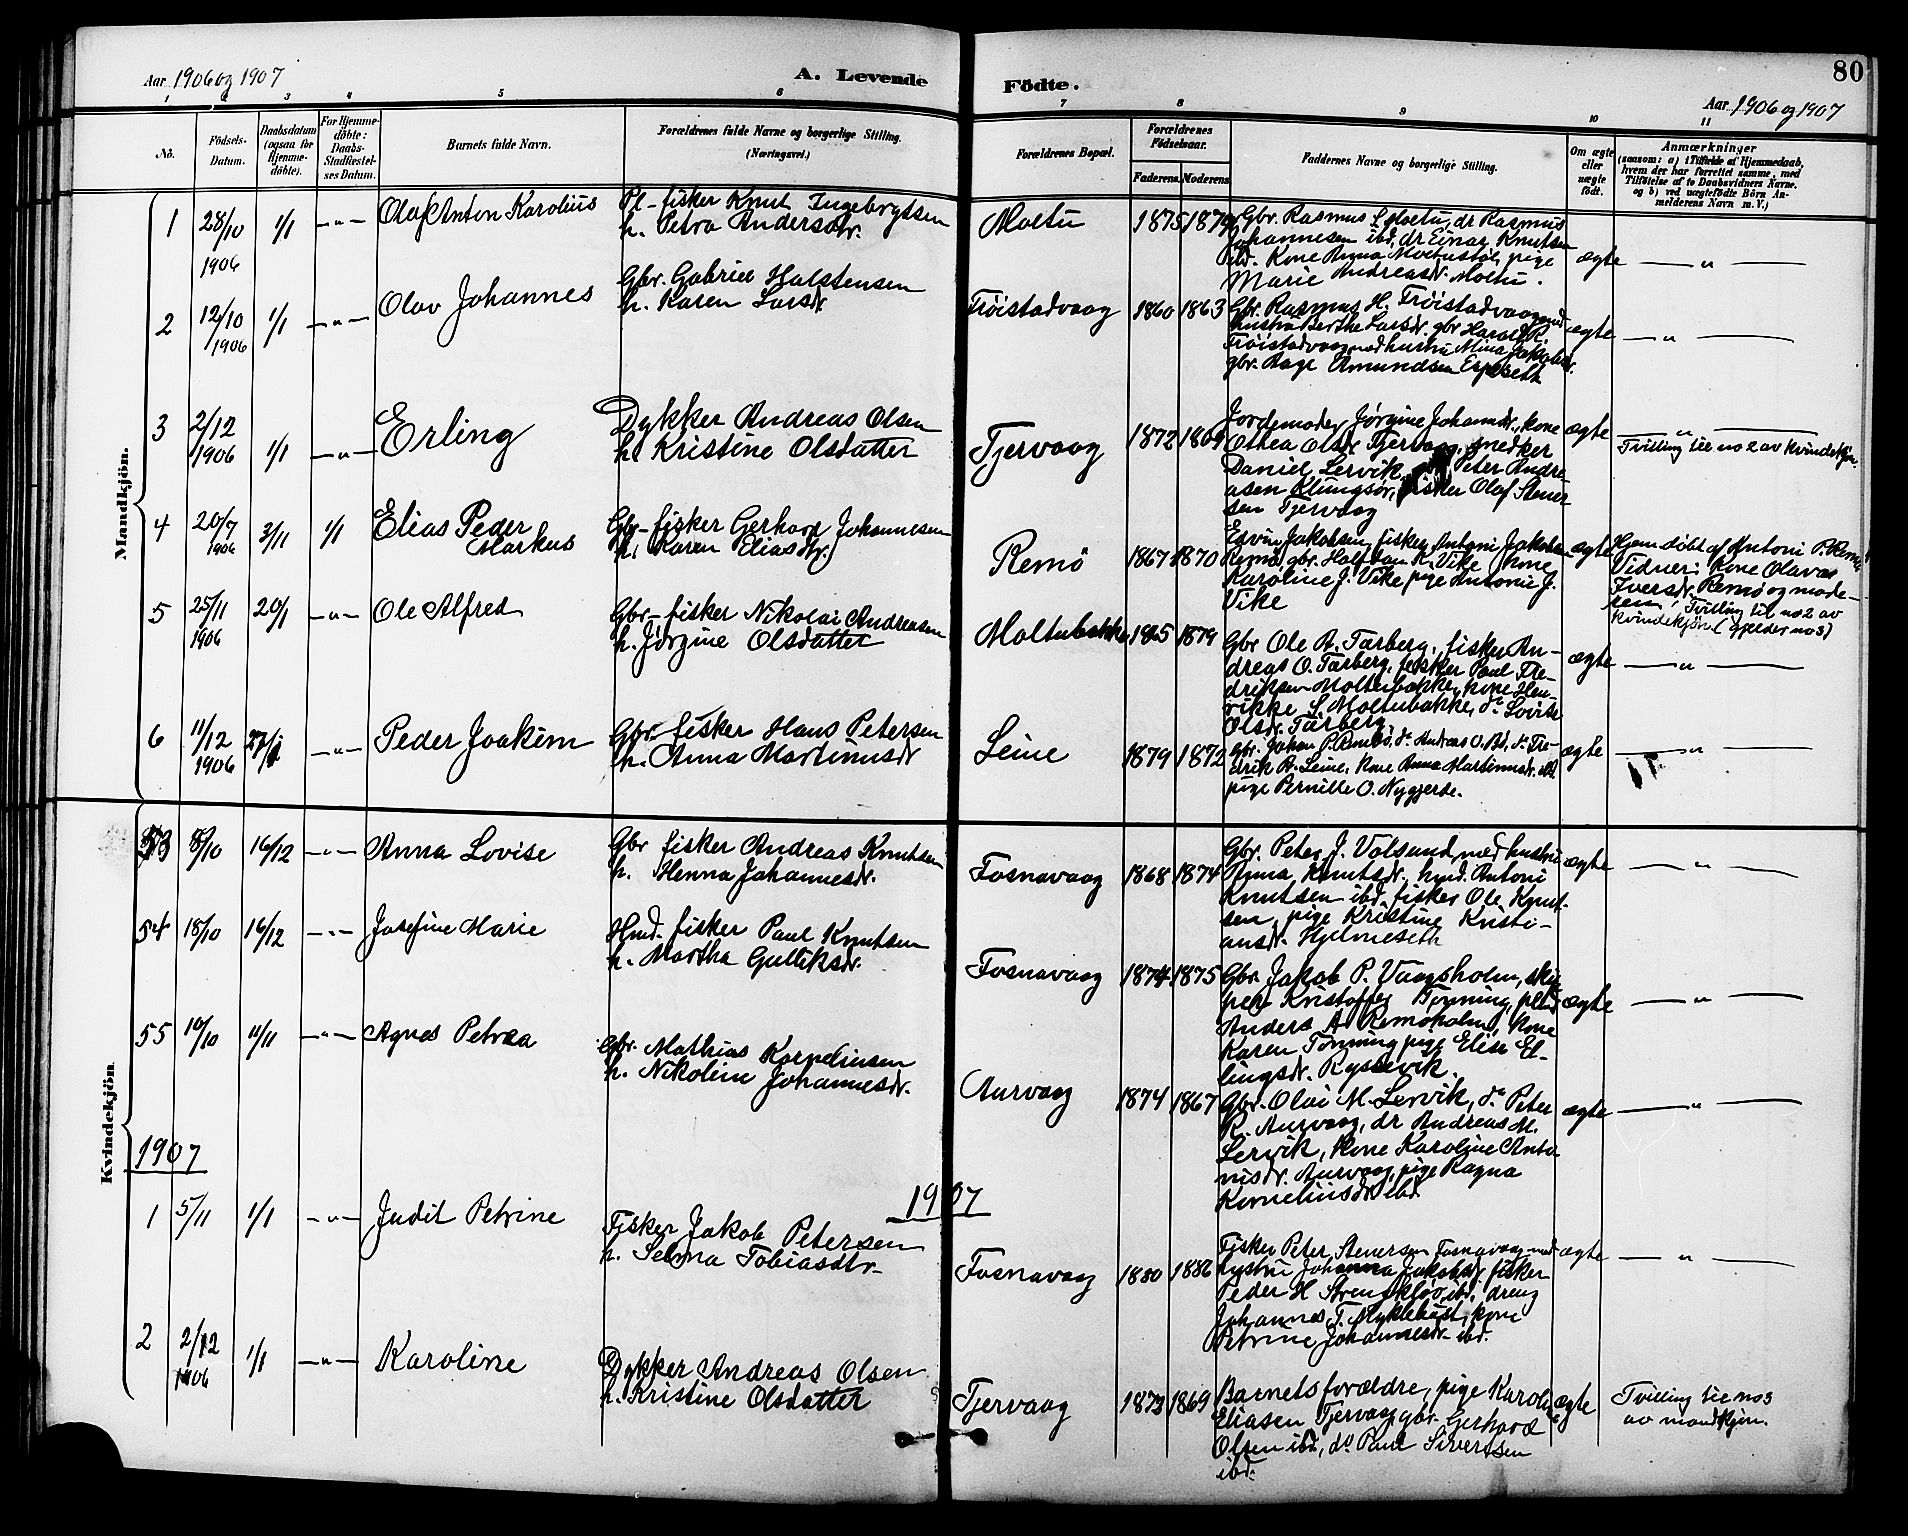 Aar 1906 og 1907
A. Levende
Födte.
80
Aar 1906 og 1907
1 2 3 4 5 6 7 8 9 10 11
No.
Födsels-
Datum.
Daabsdatum
(ogsaa for
Hjemme-
døbte).
For Hjemme-
døbte:
Daabs-
Stadfæstel-
ses Datum.
Barnets fulde Navn.
Forældrenes fulde Navne og borgerlige Stilling.
(Næringsvei.)
Forældrenes Bopæl.
Forældrenes
Födselsaar.
Faderens.
Moderens
Faddernes Navne og borgerlige Stilling.
Om ægte
eller
uægte
födt.
Anmærkninger
(saasom: a) i Tilfælde af Hjemmedaab,
hvem der har forrettet samme, med
Tilføielse af to Daabsvidners Navne,
og b) ved uægtefødte Börn An-
melderens Navn m. V.)
Mandkjön.
1
28/10
1906
1/1
-"-
Olaf Anton Karolius
Pl- fisker Knut Ingebrigtsen
h. Petra Andersdtr.
Moltu
1875
Gbr. Rasmus S. Moltu, dr Rasmus
Johannesen ibd, dr Einar Knutsen
ibd. Kone Anna Moltustøl, pige
Marie Andreasdr. Moltu.
ægte
— " —
2
12/10
1906
1/1
-"-
Olav Johannes
Gbr. Gabriel Halstensen
h. Karen Larsdr.
Frøistadvaag
1860
1863
Gbr. Rasmus H. Frøistadvaag med
hustru Berthe Larsdr. gbr Harald R.
Frøistadvaag med hustru Mina Jakobsdr.
gbr. Aage Amundsen Espeseth
ægte
— " —
3
2/12
1906
1/1
-"-
Erling
Dykker Andreas Olsen
h. Kristine Olsdatter
Tjervaag
1872
1869
Jordemoder Jørgine Johannsdr., kone
Othea Olsdr Tjervaag, snedker
Daniel Lervik, Peter Andre-
asen Klungsør, fisker Olaf Stener-
sen Tjervaag
ægte
— " —
Tvilling til no 2 av kvindekjøn.
4
20/7
1906
3/11
1/1
Elias Peder
Markus
Gbr- fisker Gerhard Johannesen
h. Karen Eliasdr.
Remø
1867
1870
Edvin Jakobsen, fisker Antoni Jakobsen
Remø, gbr. Halfdan K. Vike kone
Karoline J. Vike pige Antonie J.
Vike
ægte
Hjem døbt af Antoni P. Remø
Vidner: Kone Olava
Iversdr. Remø og mode-
ren. Tvilling til no 2 av
kvindekjøn. (gjelder no 3)
5
25/11
1906
20/1
-"-
Ole Alfred
Gbr- fisker Nikolai Andreasen
h. Jørgine Olsdatter
Moltubakke
1879
Gbr Ole A. Tarberg, fisker An-
dreas O. Tarberg, fisker Paul Fre-
driksen Moltubakke, kone Hen-
rikke S. Moltubakke, do Lovise
Olsdr. Tarberg.
ægte
— " —
6
11/12
1906
27/1
-"-
Peder Joakim
Gbr- fisker Hans Petersen
h. Anna Martinusdr
Leine
1879
1872
Gbr. Johan P. Remø, do Andreas O. Bø, do Fre-
drik A. Leine, kone Anna Martinusdr. ibd
pige Pernille O. Nygjerde.
ægte
— " —
Kvindekjön.
53
8/10
16/12
-"-
Anna Lovise
Gbr fisker Andreas Knutsen
h. Henna Johannesdr.
Fosnavaag
1868
1874
Gbr. Peter J. Volsund med hustru
Anna Knutsdr. hmd. Antoni
Knutsen ibd, fisker Ole Knut-
sen, pige Kristine Kristi-
ansdr. Hjelmeseth
ægte
— " —
54
18/10
16/12
-"-
Josefine Marie
Hmd. fisker Paul Knutsen
h. Martha Gulliksdr.
Fosnavaag
1874
1875
Gbr. Jakob P. Vaagsholm, skip-
per Kristoffer Tønning,
Anders A. Remøholm, kone
Karen Tønning pige Elise El-
lingsdr. Ryssevik.
ægte
— " —
55
19/10
11/11
-"-
Agnes Petræa
Gbr. Mathias Korneliusen
h. Nikoline Johannesdr.
Aurvaag
1874
1867
Gbr. Olai M. Lervik, do Peter
R. Aurvaag, dr Andreas M.
Lervik, kone Karoline Anto
nisdr. Aurvaag, pige Ragna
Kornelius dr ibd.
ægte
— " —
1907
1907
1
5/11
1/1
-"-
Judit Petrine
Fisker Jakob Petersen
h. Selma Tobiasdtr-
Fosnavaag
1880
1886
Fisker Peter Stenersen Fosnavaag med
hustru Johanna Jakobsdr. fisker
Peder H ibd, dreng
Johannes T. Myklebust, kone
Petrine Johannesdr. ibd.
ægte
— " —
2
2/12
1906
1/1
-"-
Karoline
Dykker Andreas Olsen
h. Kristine Olsdatter
Tjervaag
1873
1869
Barnets forældre, pige Karoline
Eliasen Tjervaag, gbr. Gerhard
Olsen ibd, do Paul Sivertsen
ibd.
ægte
Tvilling til no 3
av mandkjøn.